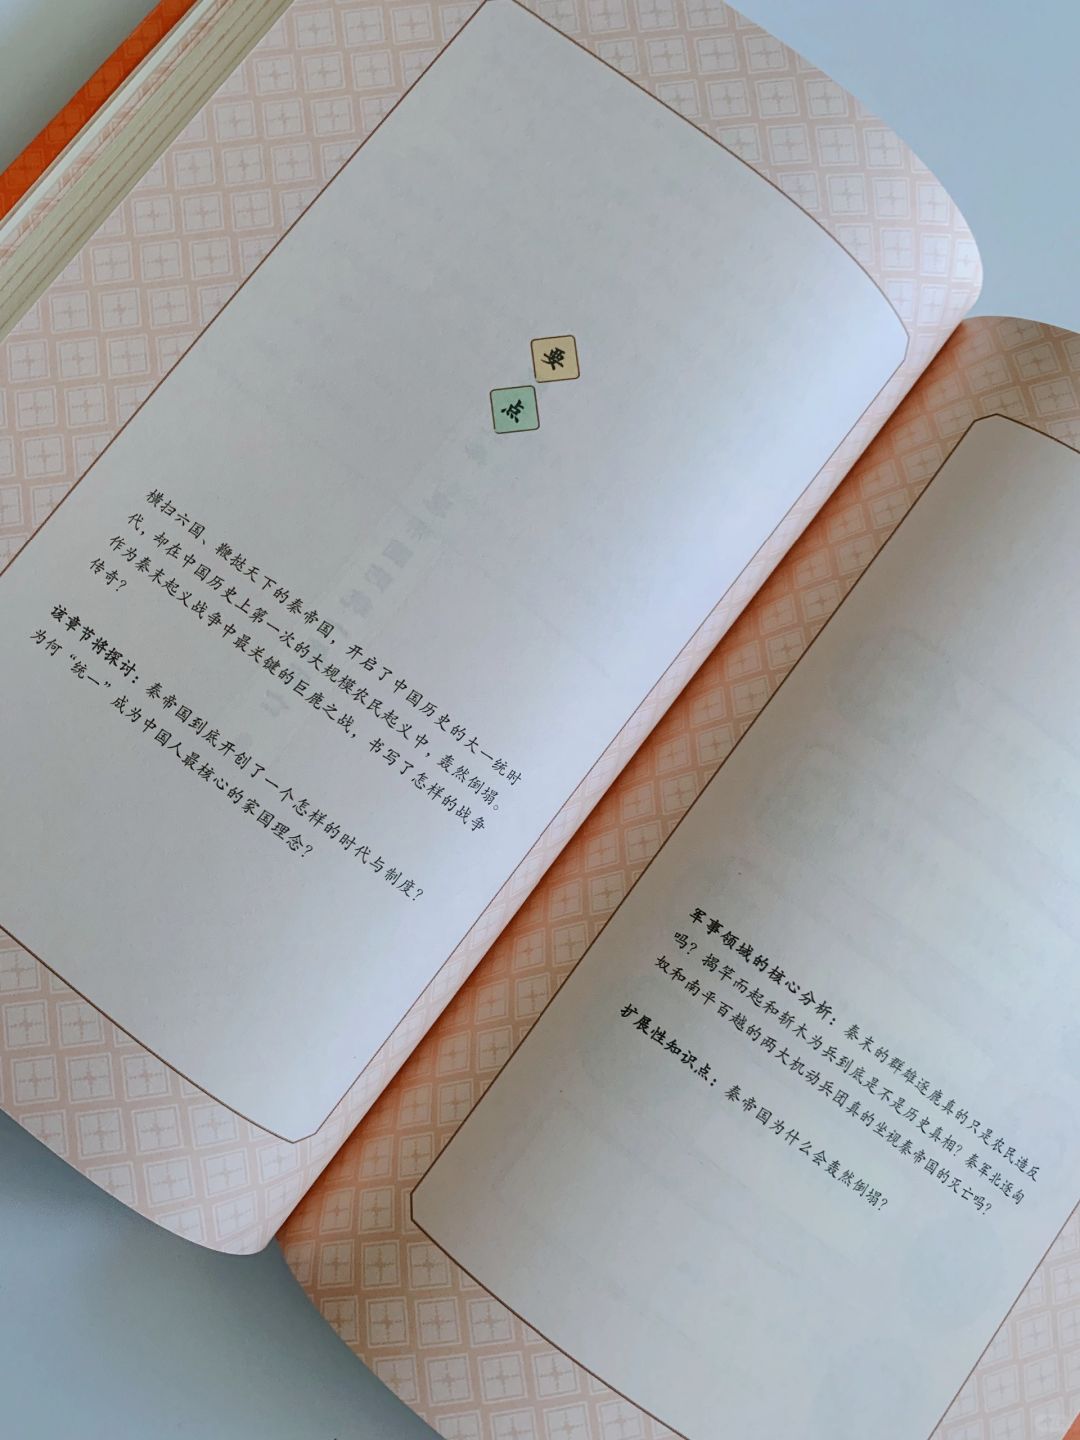 要点
横扫六国、鞭挞天下的秦帝国，开启了中国历史的大一统时
代，却在中国历史上第一次的大规模农民起义中，轰然倒塌。
作为秦末起义战争中最关键的巨鹿之战，书写了怎样的战争
传奇？
该章节将探讨：秦帝国到底开创了一个怎样的时代与制度？
为何“统一”成为中国人最核心的家国理念？
军事领域的核心分析：秦末的群雄逐鹿真的只是农民造反
吗？揭竿而起和斩木为兵到底是不是历史真相？秦军北逐匈
奴和南平百越的两大机动兵团真的坐视秦帝国的灭亡吗？
扩展性知识点：秦帝国为什么会轰然倒塌？